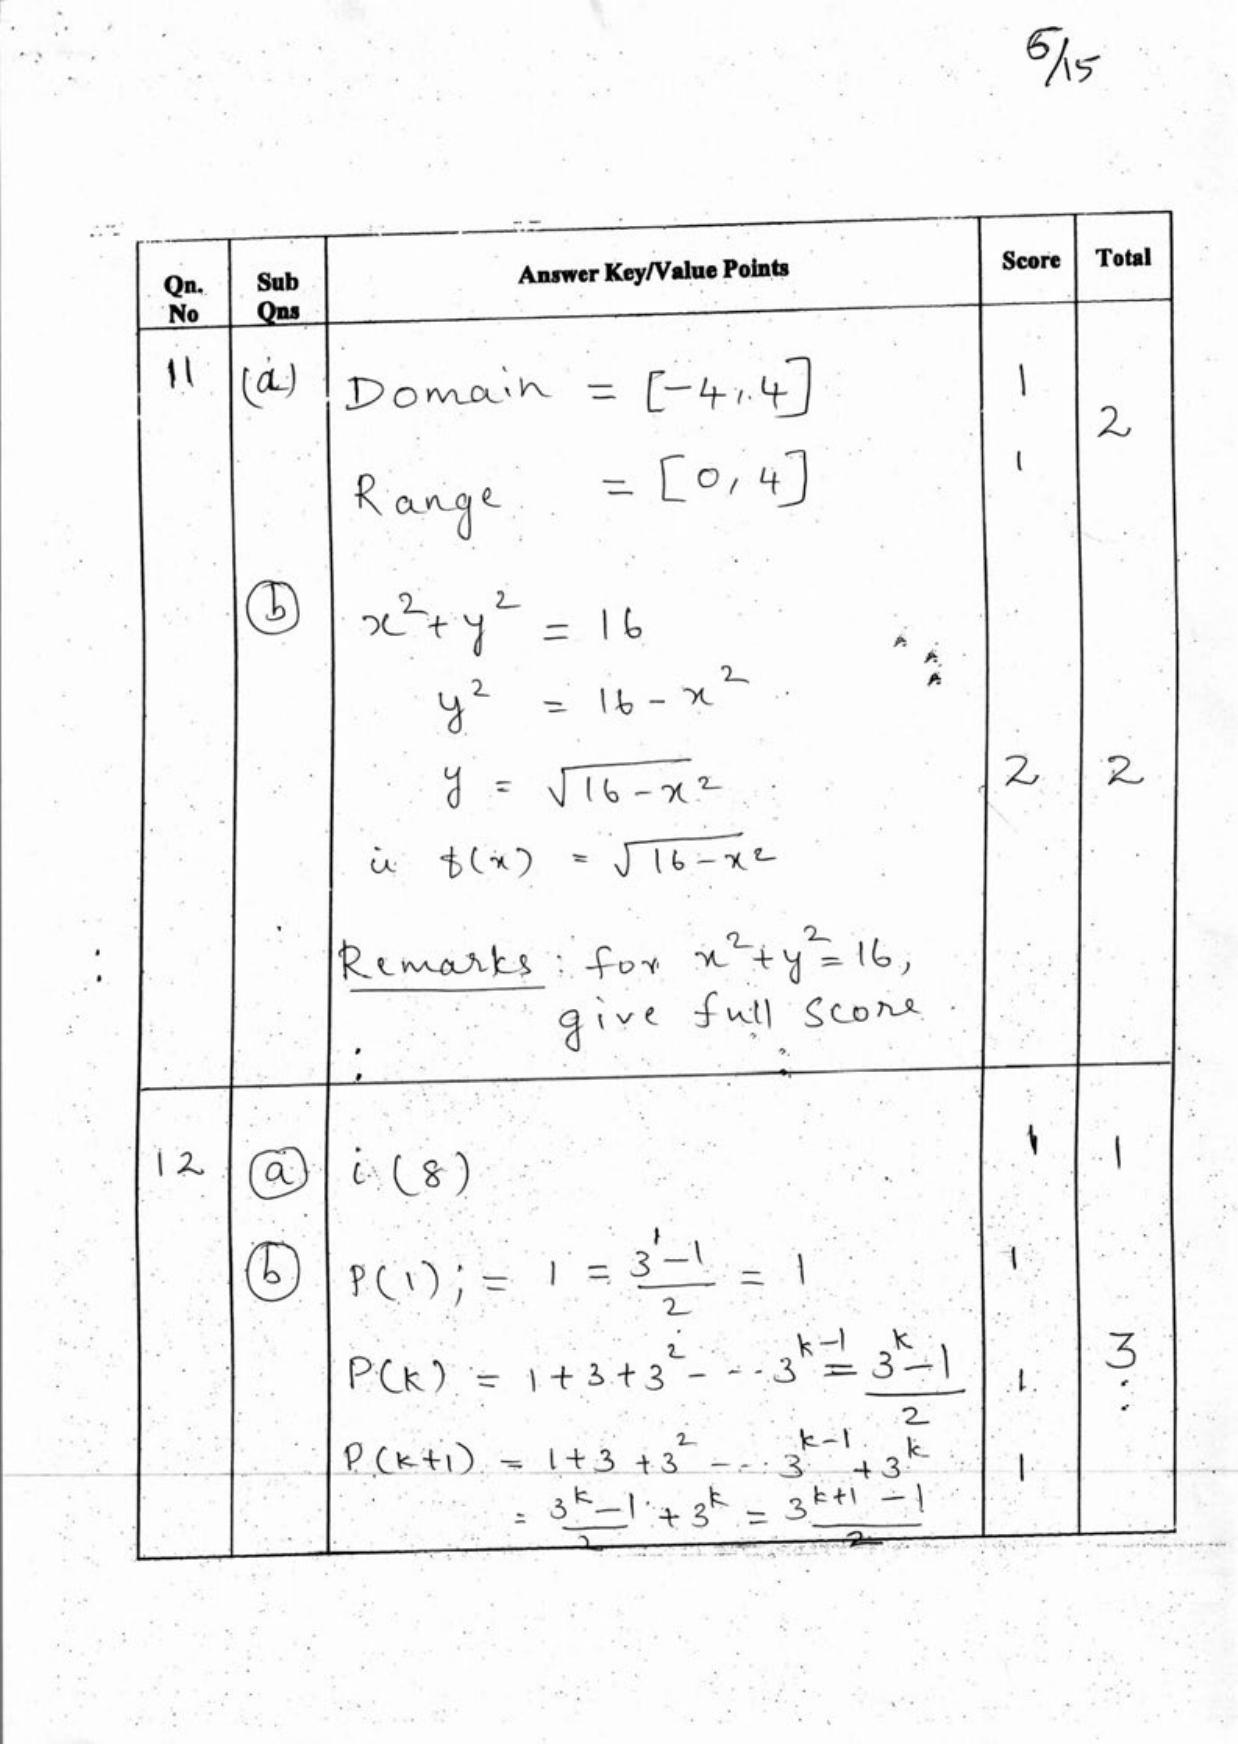 6/15
Qn. No Sub Qns Answer Key/Value Points Score Total
11 (a) Domain = [-4, 4] 1
2
Range = [0, 4] 1
(b) x²+y² = 16
y² = 16-x²
y = √16-x² 2 2
ie f(x) = √16-x²
Remarks: for x²+y²=16,
give full score.
12 (a) i (8) 1 1
(b) P(1); = 1 = (3¹-1)/2 = 1 1
P(k) = 1+3+3² --- 3^(k-1) = (3^k-1)/2 1 3
P(k+1) = 1+3+3² --- 3^(k-1) + 3^k 1
= (3^k-1)/2 + 3^k = (3^(k+1)-1)/2